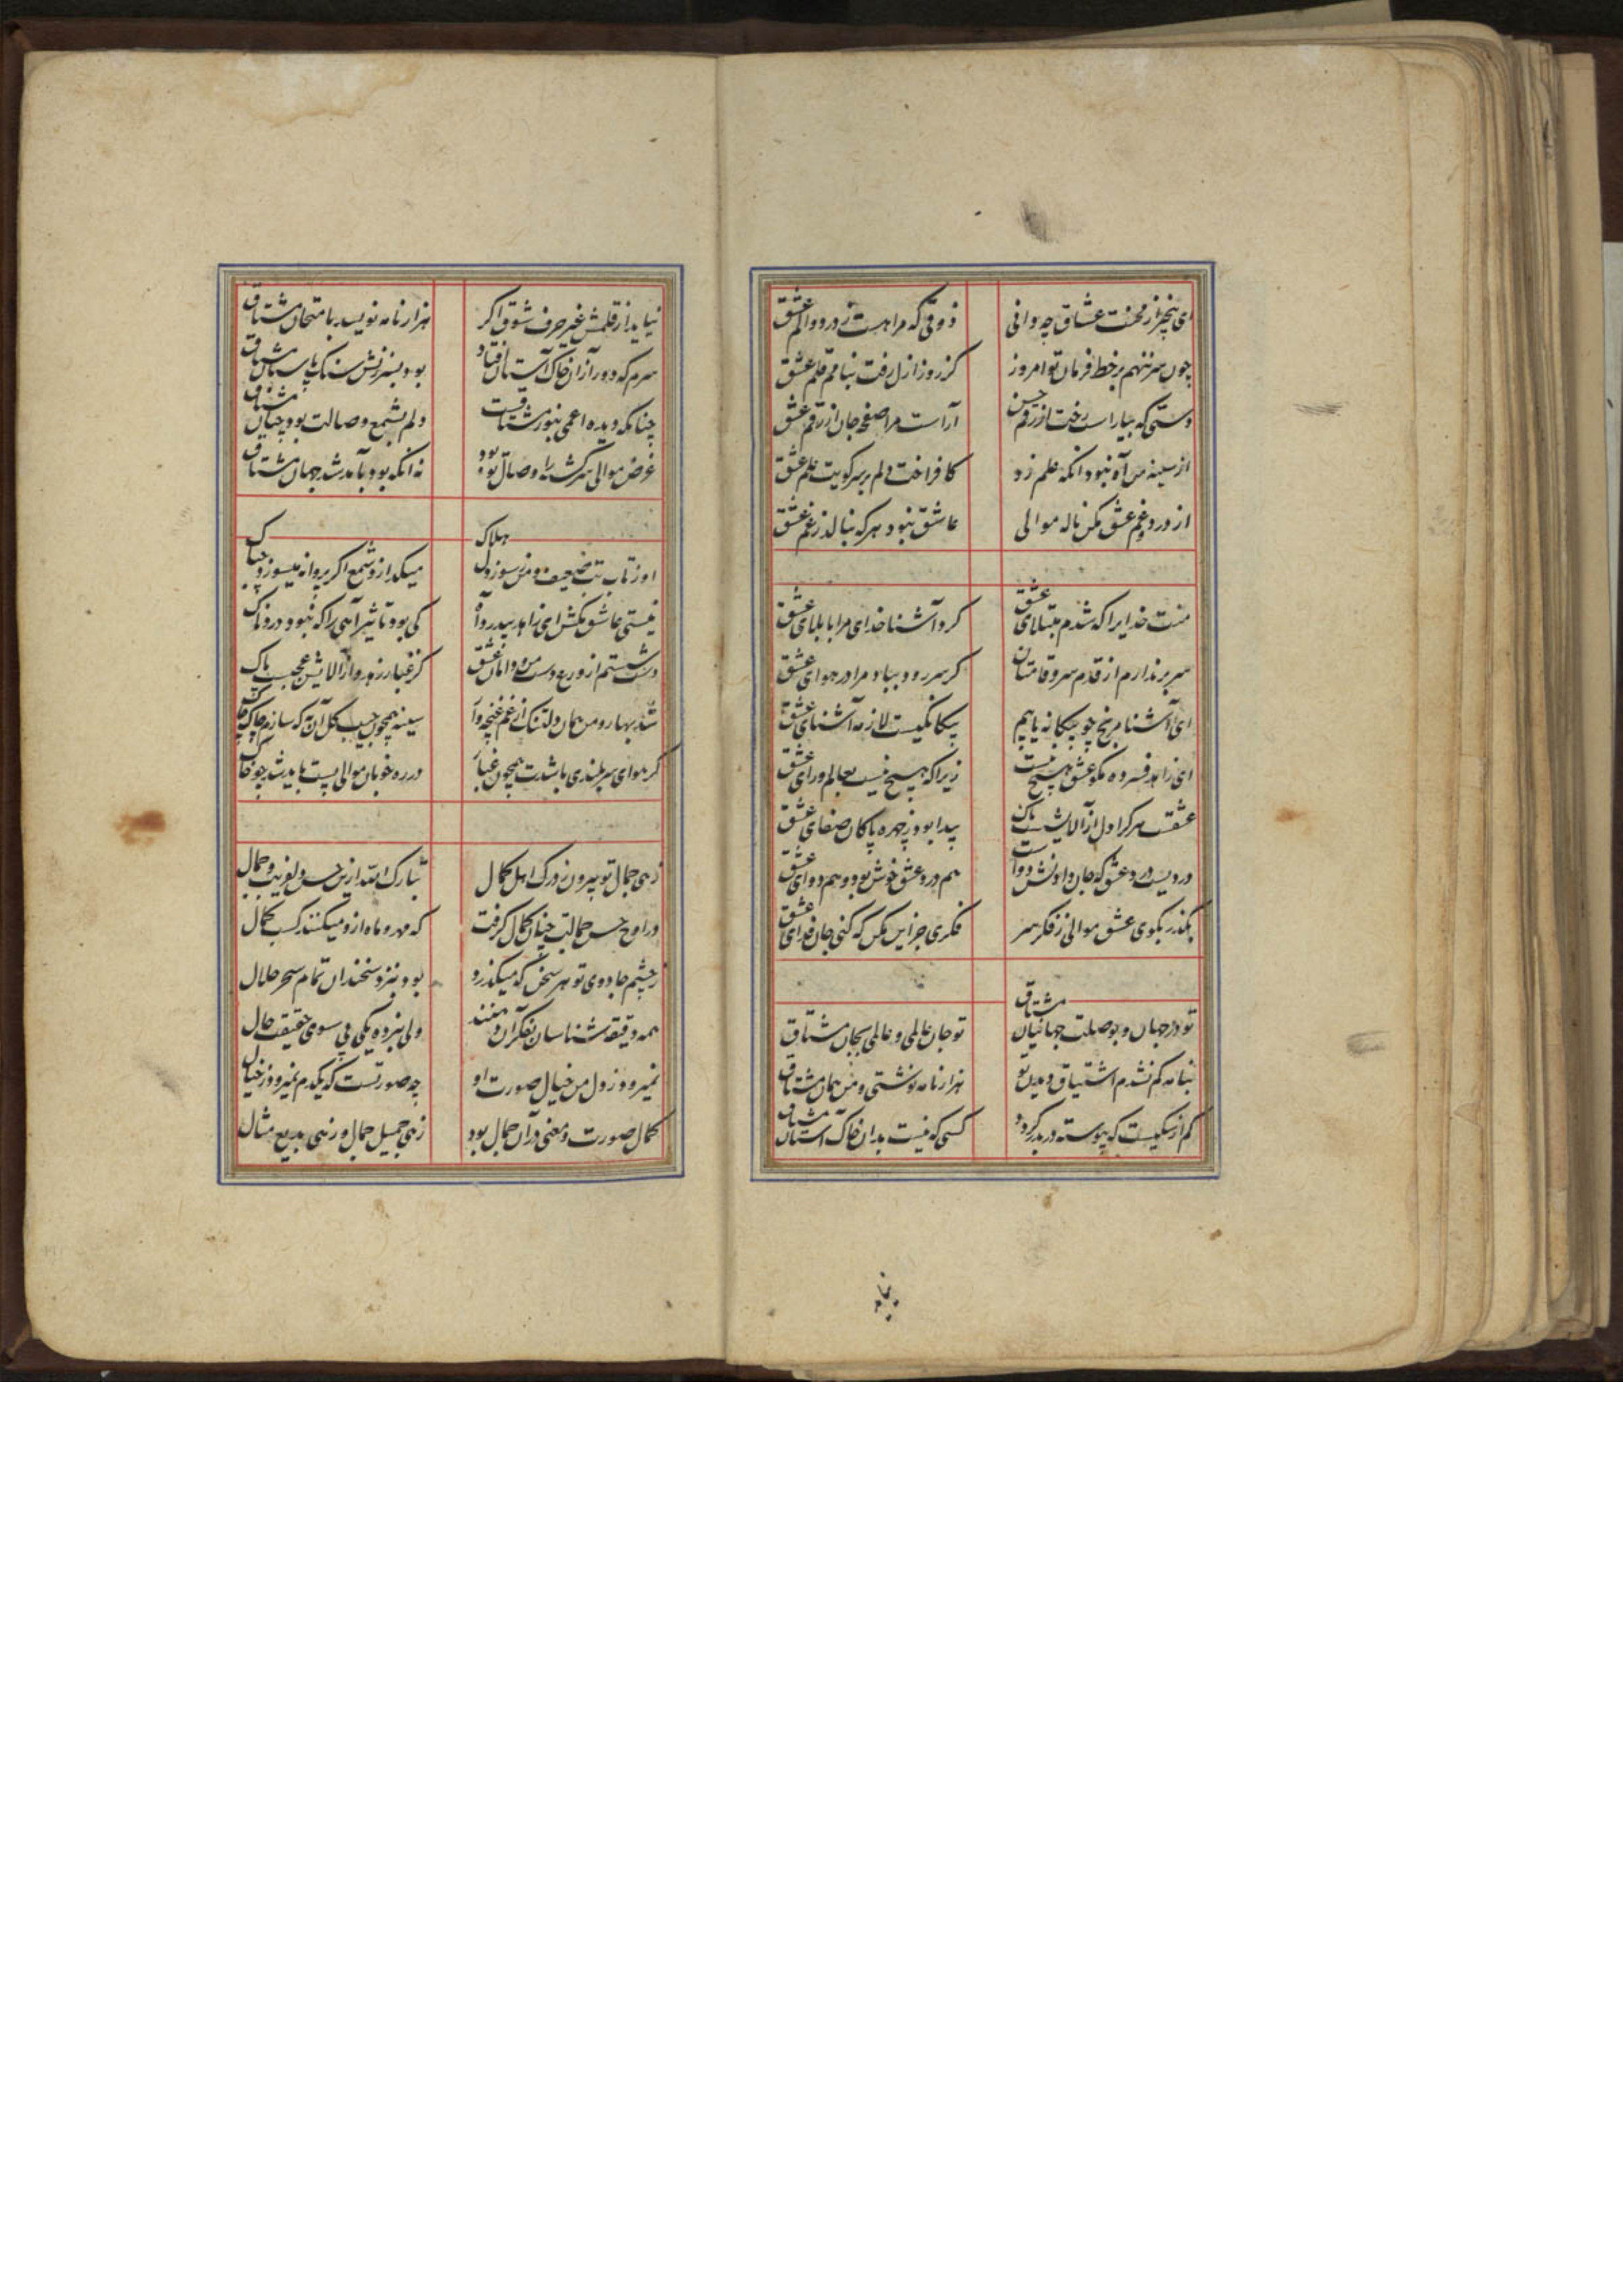 ای بیخبر از محنت عشاق چه دانی
ذوقی که مرا هست ز درد و الم عشق
چون سر ننهم بر خط فرمان تو امروز
کز روز ازل رفت بنامم قلم عشق
دستی که بیاراست رخت از رقم حسن
آراست مرا صفحه جان از رقم عشق
از سینه من آه نبود آنکه علم زد
کافراخت دلم بر سر کویت علم عشق
از درد و غم عشق مکن ناله موالی
عاشق نبود هر که بنالد ز غم عشق
منت خدایرا که شدم مبتلای عشق
کرد آشنا خدای مرا با بلای عشق
سر بر ندارم از قدم سرو قامتان
کر سر رود بباد مرا در هوای عشق
ای آشنا مرنج چو بیکانه یابیم
بیکانگیست لازمه آشنای عشق
ای زاهد فسرده مکو عشق هیچ نیست
زیرا که هیچ نیست بعالم ورای عشق
عشقت هر کرا دل از آلایشست پاک
پیدا بود ز چهره پاکان صفای عشق
دردیست درد عشق که جان دادنش دواست
هم درد عشق خوش بود و هم دوای عشق
بگذر بکوی عشق موالی ز فکر سر
فکری جز این مکن که کنی جان فدای عشق
تو در جهان و بوصلت جهانیان مشتاق
تو جان عالمی و عالمی بجان مشتاق
بنامه کم نشدم اشتیاق دیدن تو
هزار نامه نوشتی و من همان مشتاق
کم از سکیست که پیوسته در بدر کردد
کسی که نیست بدان خاک آستان مشتاق
نیاید از قلمش غیر حرف شوق اکر
هزار نامه نویسد بامتحان مشتاق
سرم که دور از آن خاک آستان افتاد
بود بسرزنش سنک پاسبان مشتاق
چنانکه دیده اعمی بنور مشتاقست
دلم بشمع وصالت بود چنان مشتاق
غرض موالی سرکشته را وصال تو بود
نه آنکه بود بآمد شد جهان مشتاق
او ز تاب تب ضعیف و من ز سوز دل هلاک
میکدازد شمع اکر پروانه میسوزد چه باک
نیستی عاشق مکش ای زاهد بیدرد آه
کی بود تاثیر آهی را که نبود دردناک
دست شستم از ورع دست من و دامان عشق
کز غبار زهد دارد آلایش عجب پاک
شد بهار و من همان دلتنک از غم غنچه وار
سینه همچون جیب کل آن به که سازم چاک چاک
کر هوای سر بلندی باشدت همچون غبار
در ره خوبان موالی پست باید شد چو خاک
زهی جمال تو بیرون ز درک اهل کمال
تبارک الله ازین حسن دلفریب و جمال
در اوج حسن جمالت چنان کمال کرفت
که مهر و ماه ازو میکنند کسب کمال
ز چشم جادوی تو هر سخن که میکذرد
بود بنزد سخندان تمام سحر حلال
همه دقیقه شناسان بفکر آن دهنند
ولی نبرده یکی پی سوی حقیقت حال
نمیرود ز دل من خیال صورت او
چه صورتست که یکدم نمیرود ز خیال
کمال صورت و معنی در آن جمال بود
زهی جمیل جمال و زهی بدیع مثال
نیاید